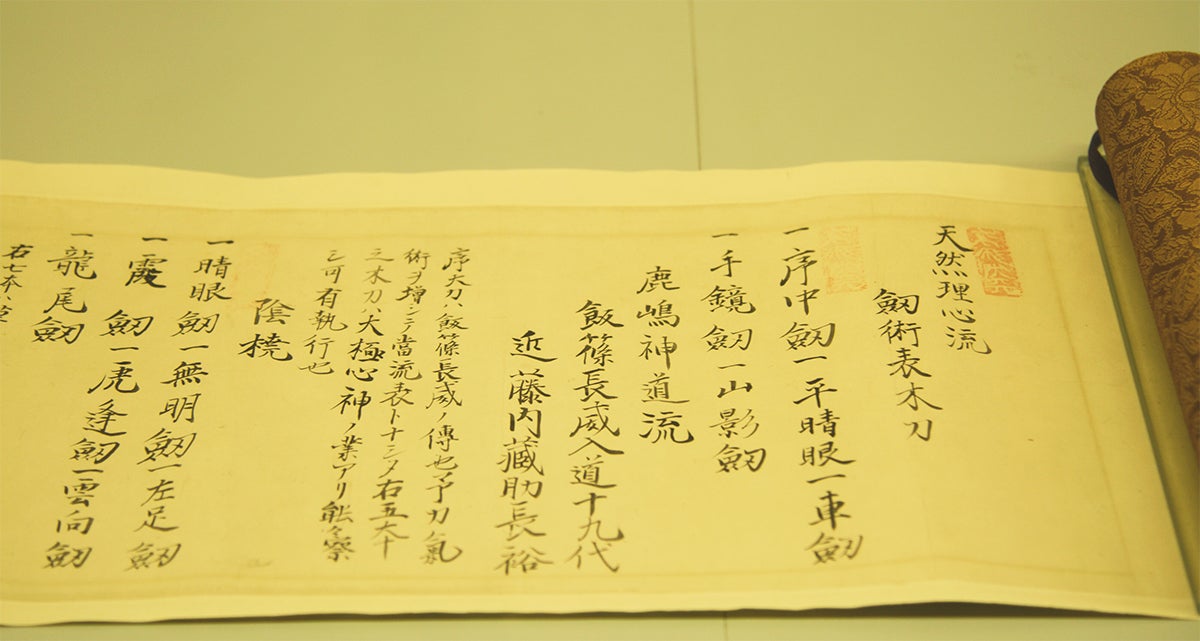 天然理心流
劔術表木刀
一序中劔一平晴眼一車劔
一手鏡劔一山影劔
鹿嶋神道流
飯篠長威入道十九代
近藤内藏助長裕
序大刀ハ飯篠長威ノ傳也予カ氣
術ヲ増シテ當流表トナシヌ右五大十
三木刀ハ大極心神ノ業アリ能々察
シ可有執行也
陰橈
一晴眼劔一無明劔一左足劔
一霞劔一虎逢劔一雲向劔
一龍尾劔
右七本ハ